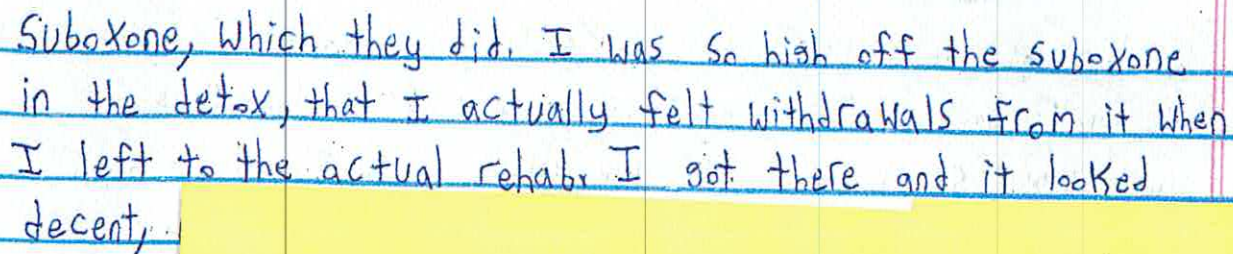 Suboxone, which they did. I was so high off the suboxone
in the detox, that I actually felt withdrawals from it when
I left to the actual rehab. I got there and it looked
decent,